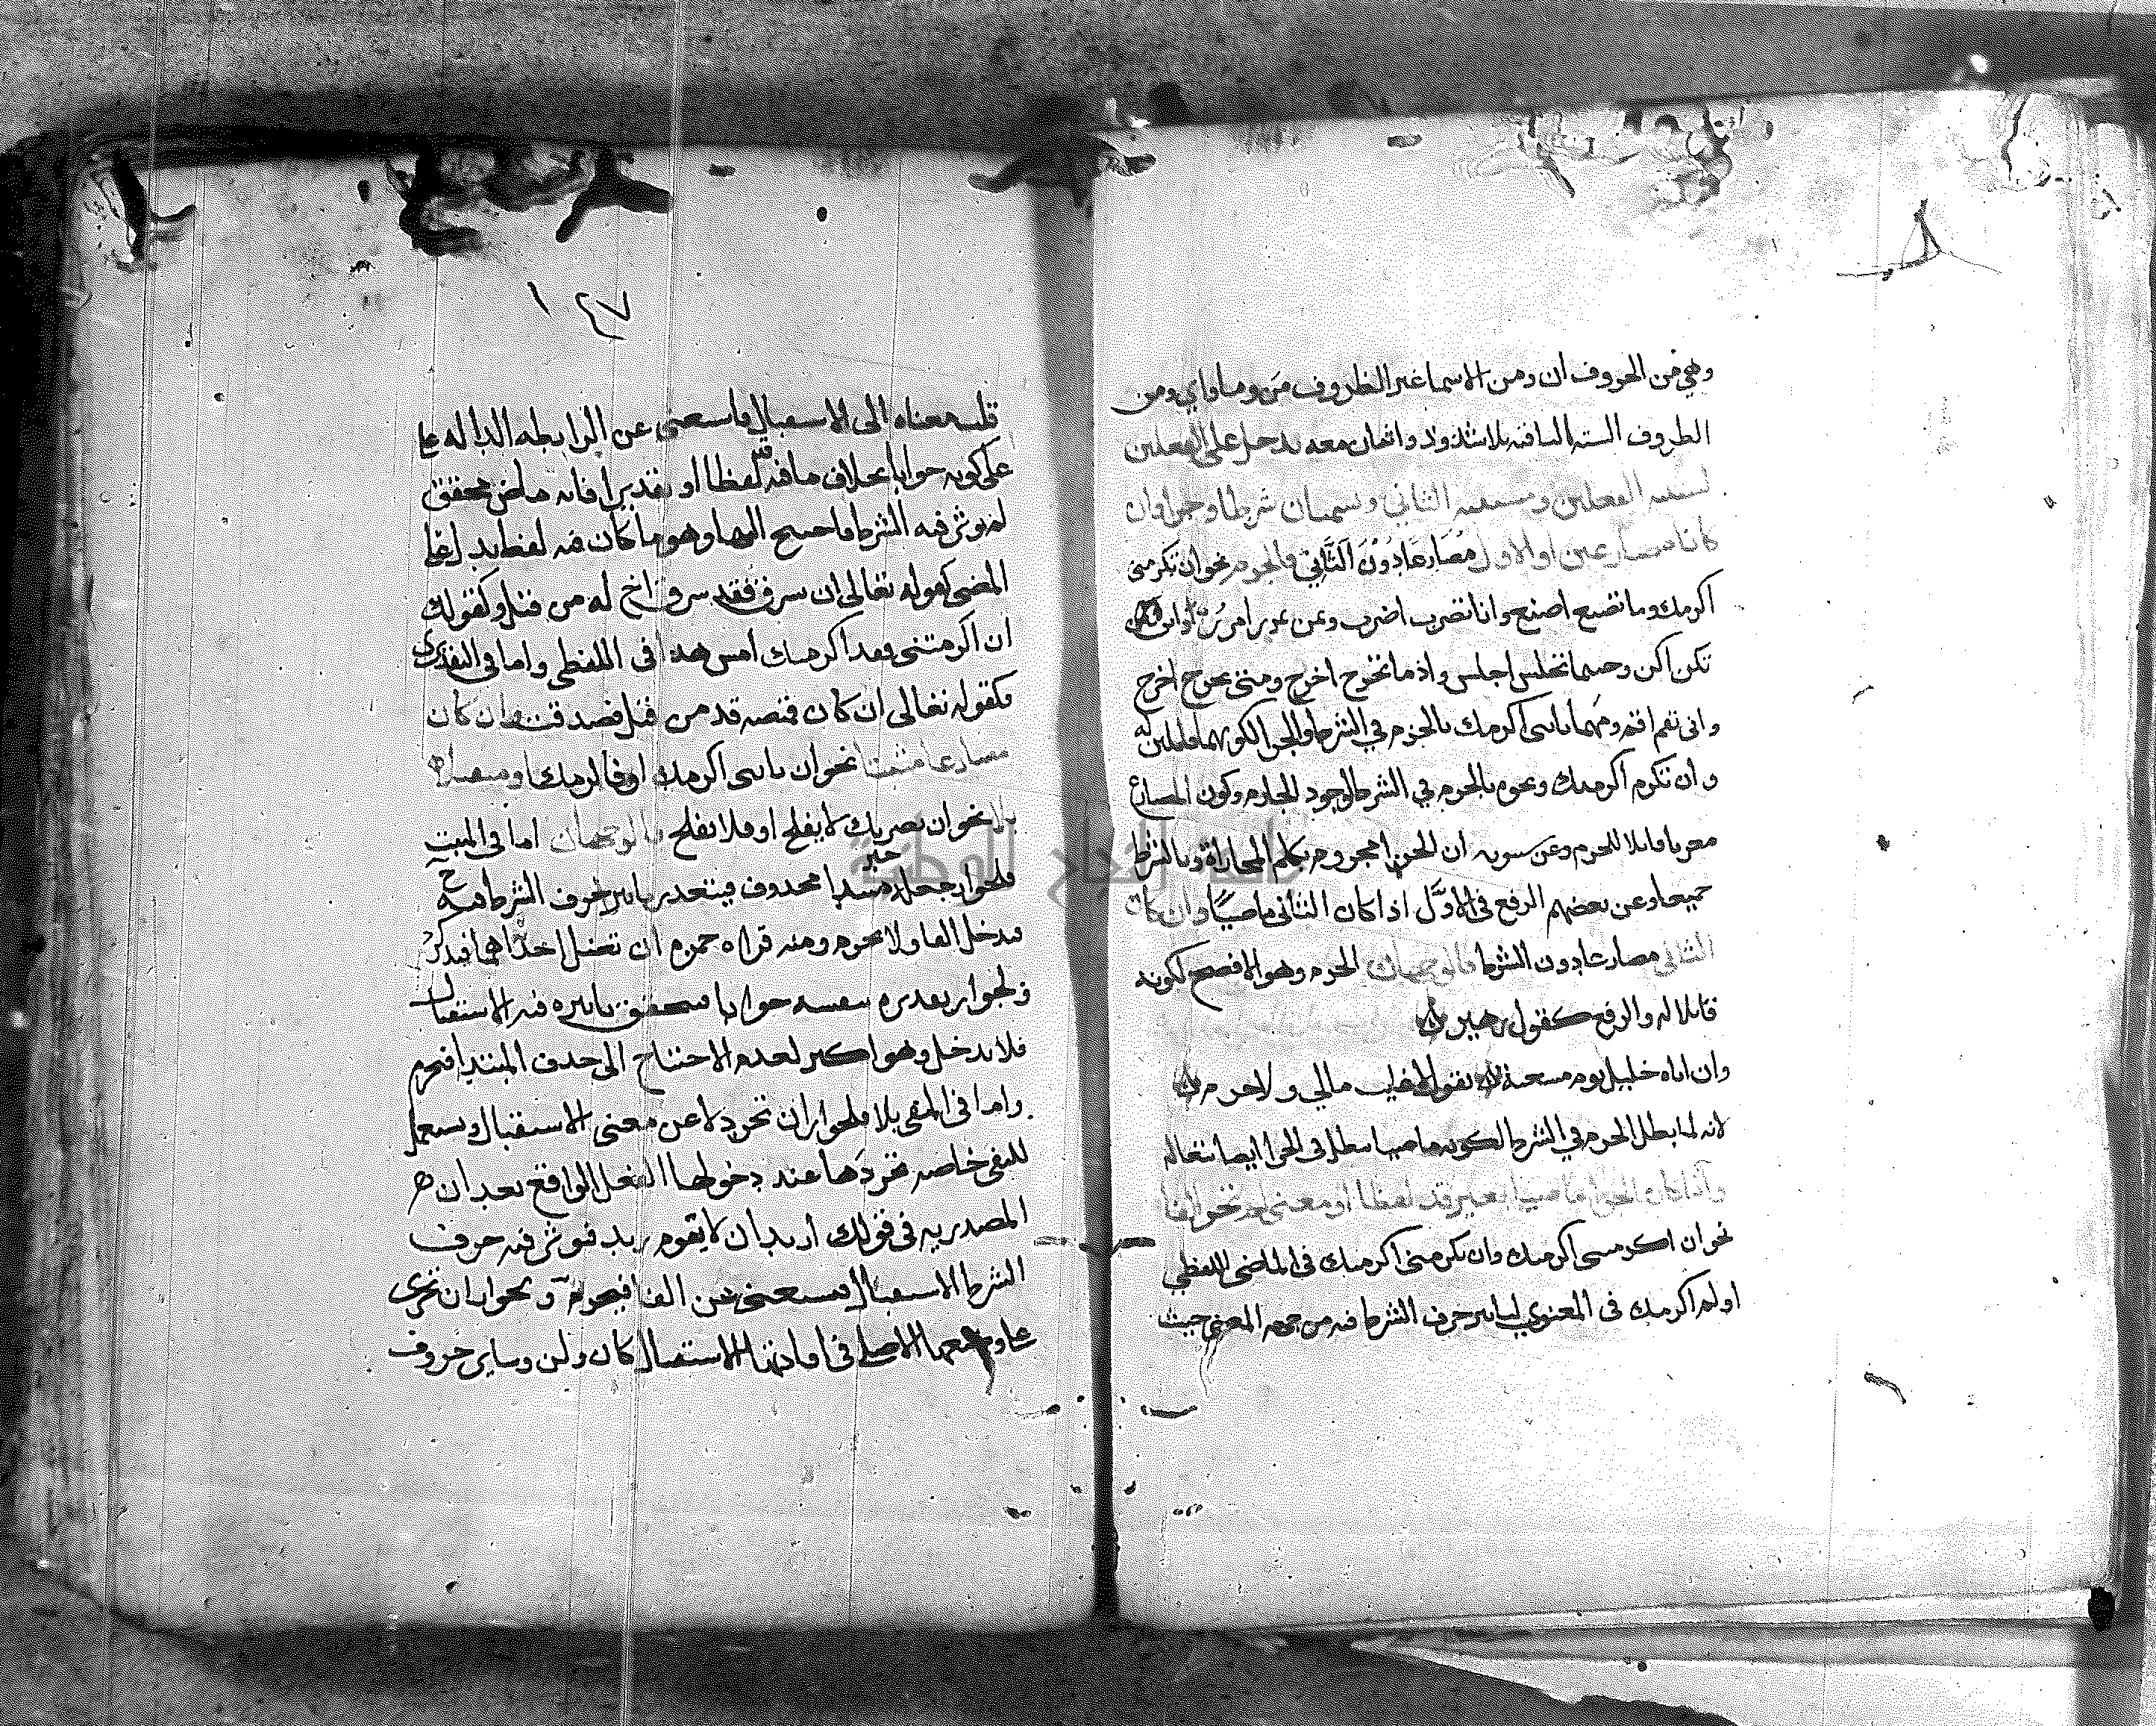 وهي من الحروف ان ومن الاسما غير الظروف من وما واي ومن
الظروف الستة الباقية بلا شذوذ واثمان معه يدخل على الفعلين
لسببية الفعلين ومسببية الثاني ويسميان شرطا وجزا وان
كانا مضارعين او الاول مضارعا دون الثاني فالجزم نحو ان تكرمني
اكرمك وما تصنع اصنع وايا تضرب اضرب وبمن تمرر امرر واين
تكن اكن وحيثما تجلس اجلس واذ ما تخرج اخرج ومتى تخرج اخرج
وانى تقم اقم ومهما تاتني اكرمك بالجزم في الشرط والجزا لكونهما قابلين له
وان تكرم اكرمتك ونحوه بالجزم في الشرط لوجود الجازم وكون المضارع
معربا قابلا للجزم وعن سيبويه ان الجزا مجزوم بكلم المجازاة وبالشرط
جميعا وعن بعضهم الرفع في الاول اذا كان الثاني ماضيا وان كان
الثاني مضارعا دون الشرط فالوجهان الجزم وهو الافصح لكونه
قابلا له والرفع كقول زهير
وان اتاه خليل يوم مسغبة يقول لا غايب مالي ولا حرم
لانه لما بطل الجزم في الشرط لكونه ماضيا بطل في الجزا ايضا تبعا له
واذا كان الجزا ماضيا بغير قد لفظا او معنى لم تجز الفا
نحو ان اكرمتني اكرمتك وان تكرمني اكرمتك في الماضي اللفظي
او لم اكرمك في المعنوي لتاثير حرف الشرط فيه من جهة المعنى حيث
١٤٧
قلب معناه الى الاستقبال فاستغنى عن الرابطة الدالة على
على كونه جوابا بخلاف ما فيه قد لفظا او تقديرا فانه ماض محقق
لم يوثر فيه الشرط فاحتيج اليها وهو ما كان فيه لفظ يدل على
المضي كقوله تعالى ان يسرق فقد سرق اخ له من قبل وكقولك
ان اكرمتني فقد اكرمتك امس هذا في اللفظي واما في التقديري
فكقوله تعالى ان كان قميصه قد من قبل فصدقت وان كان
مضارعا مثبتا نحو ان تاتني اكرمك او فاكرمك او منفيا
بلا نحو ان نصريك لا يفلح او فلا تفلح فالوجهان اما في المثبت
فلجواز جعله خبر مبتدا محذوف فيتعذر تاثير حرف الشرط فيه ح
فيدخل الفا ولا يجزم ومنه قراة حمزة ان تضل احداهما فتذكر
ولجواز تقديره بنفسه جوابا فيتحقق تاثيره فيه الاستقبال
فلا يدخل وهو اكثر لعدم الاحتياج الى حذف المبتدا فيجزم
واما في المنفي بلا فلجواز ان تجرد لا عن معنى الاستقبال ويستعمل
للنفي خاصة تجردها عند دخولها الفعل الواقع بعد ان
المصدرية في قولك اريد ان لا يقوم زيد فيوثر فيه حرف
الشرط الاستقبال فيستغنى عن الفا فيجزم ويجوز ان تجرى
على وضعها الاصلي في افادتها الاستقبال كان ولن وساير حروف